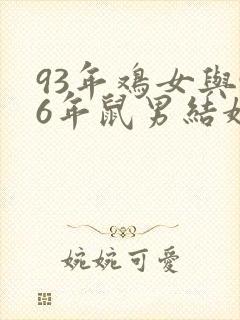 93年鳮女與
6年鼠男結
婉婉可愛